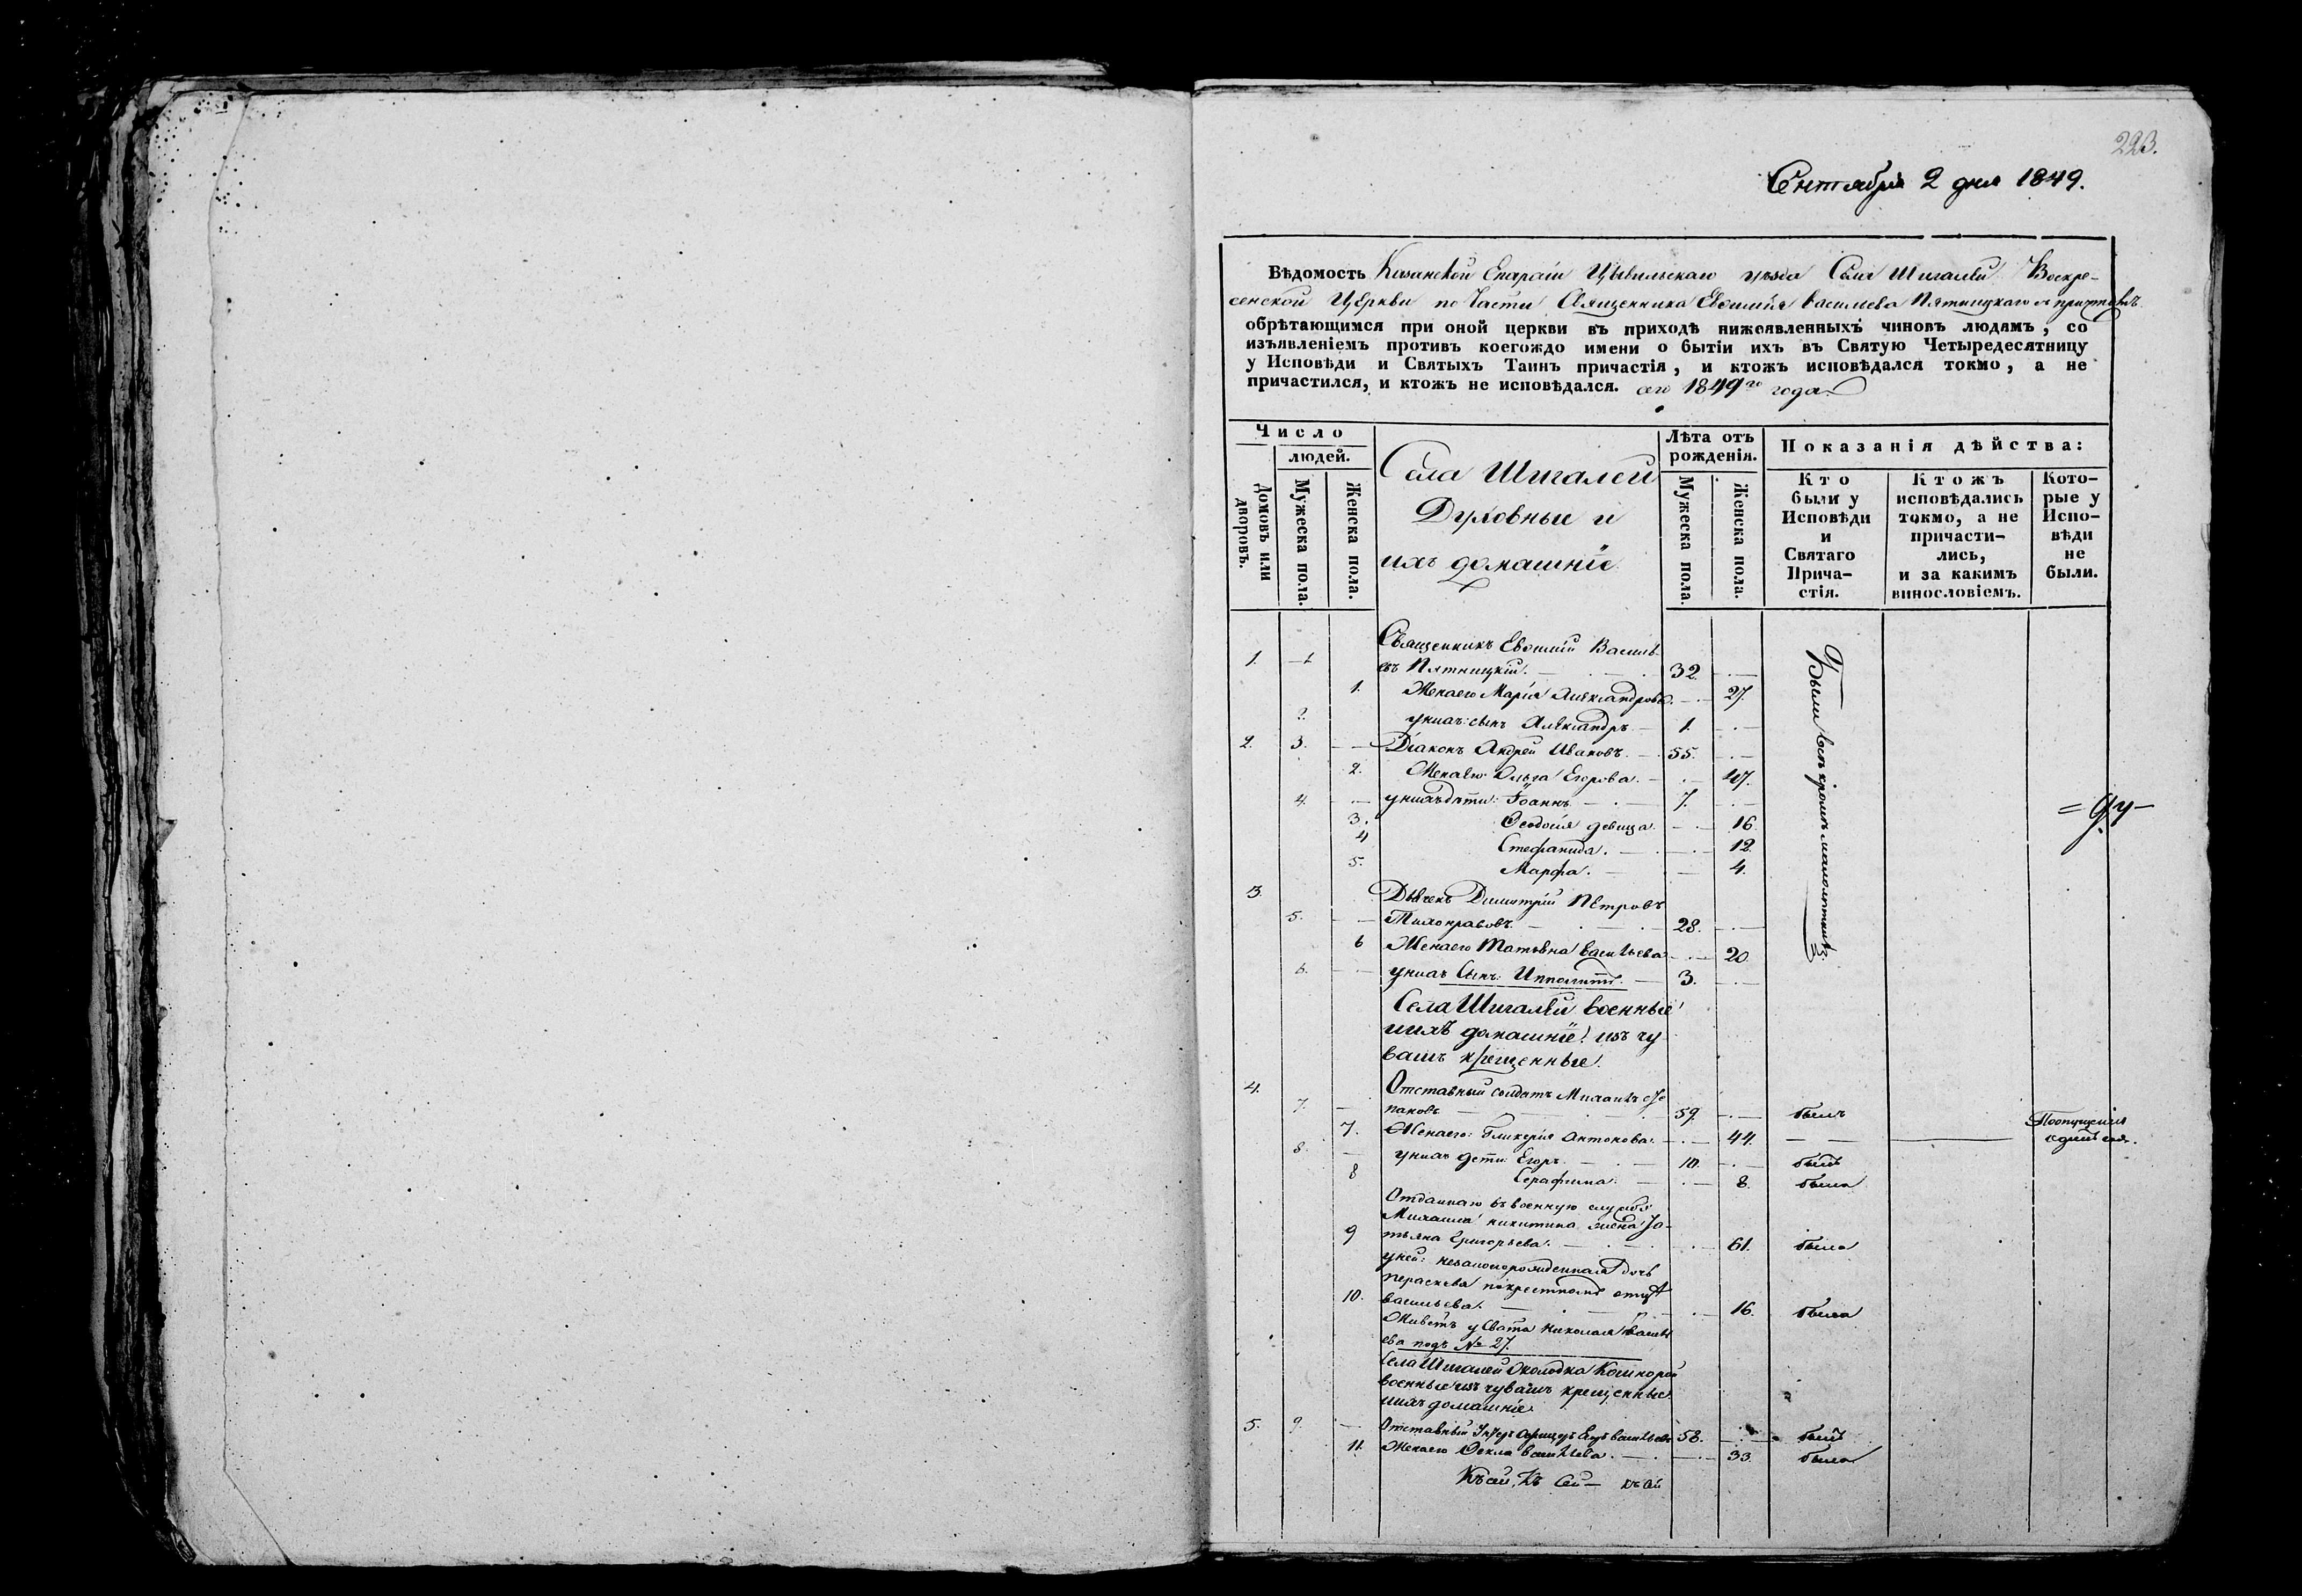 223.
Сентября 2 дня 1849.
Вѣдомость Казанской Епархіи Цывильскаго уѣзда Села Шигалей Воскре-
сенской Церкви по Части Священника Евѳимія Васильева Пятницкаго съ причтомъ
обрѣтающимся при оной церкви въ приходѣ нижеявленныхъ чиновъ людямъ, со
изъявленіемъ противъ коегождо имени о бытіи ихъ въ Святую Четыредесятницу
у Исповѣди и Святыхъ Таинъ причастія, и ктожъ исповѣдался токмо, а не
причастился, и ктожъ не исповѣдался. сего 1849го года.
Число
людей.
Домовъ или дворовъ.
Мужеска пола.
Женска пола.
Села Шигалей
Духовные и
ихъ домашніе
Лѣта отъ
рожденія.
Мужеска пола.
Женска пола.
Показанія дѣйства:
Кто
были у
Исповѣди
и
Святаго
Прича-
стія.
Ктожъ
исповѣдались
токмо, а не
причасти-
лись,
и за какимъ
винословіемъ.
Кото-
рые у
Испо-
вѣди
не
были.
Священникъ Евѳимій Василь-
1. 1 евъ Пятницкій. 32.
1. Жена его Марія Александрова. 27.
2. у нихъ: сынъ Александръ 1.
2. 3. Діаконъ Андрей Ивановъ. 55.
2. Жена его Ольга Егорова. 47.
4. у нихъ дѣти: Іоаннъ 7.
3. Ѳеодосія девица. 16.
4 Стефанида. 12.
5. Марфа. 4.
Были всѣ кромѣ малолѣтнихъ
3. Дьячекъ Димитрій Петровъ
5. Тихонравовъ. 28.
6 Жена его Татьяна Васильева 20.
6. у нихъ Сынъ: Ипполитъ. 3.
Села Шигалей военные
и ихъ домашніе: изъ чу
вашъ крещенные.
4. Отставный солдатъ Михаилъ Сте
7. пановъ 59. былъ
7. Жена его: Гликерія Антонова. 44. По опущенію
8. у нихъ дети: Егоръ 10. былъ
8 Серафима. 8. была
Отданнаго въ военную службу
Михаила Никитина жена Та-
9 тьяна Григорьева. 61. была
у ней: незаконорожденная дочь
Параскева по крестному отцу
10. Васильева. 16. была
Живетъ у Свата Николая Василь
ева подъ № 27.
Села Шигалей Околодка
военные изъ чувашъ крещенные
и ихъ домашніе.
5. 9. Отставный Унтеръ Офицеръ 58. былъ
11. Жена его Ѳекла Васильева. 33. была